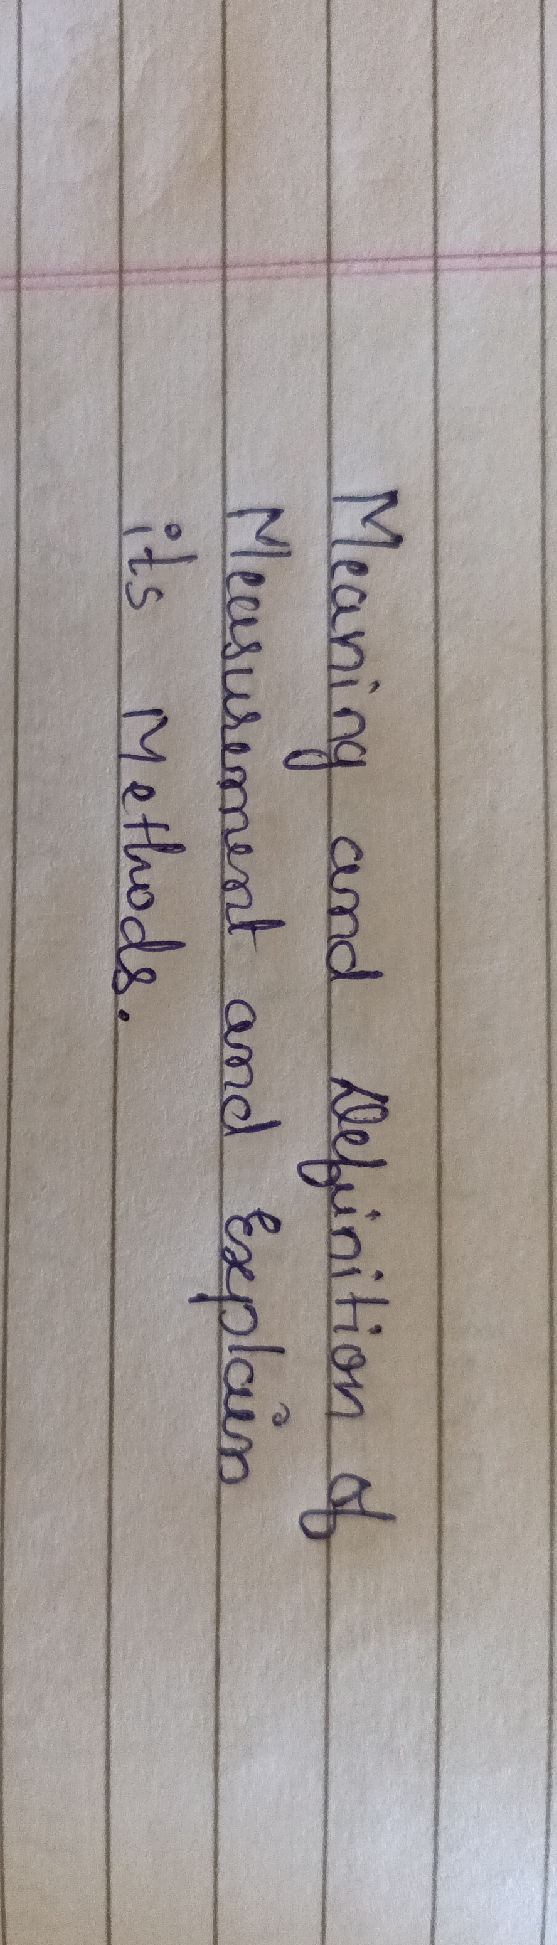 Meaning and Definition of
Measurement and Explain
its Methods.